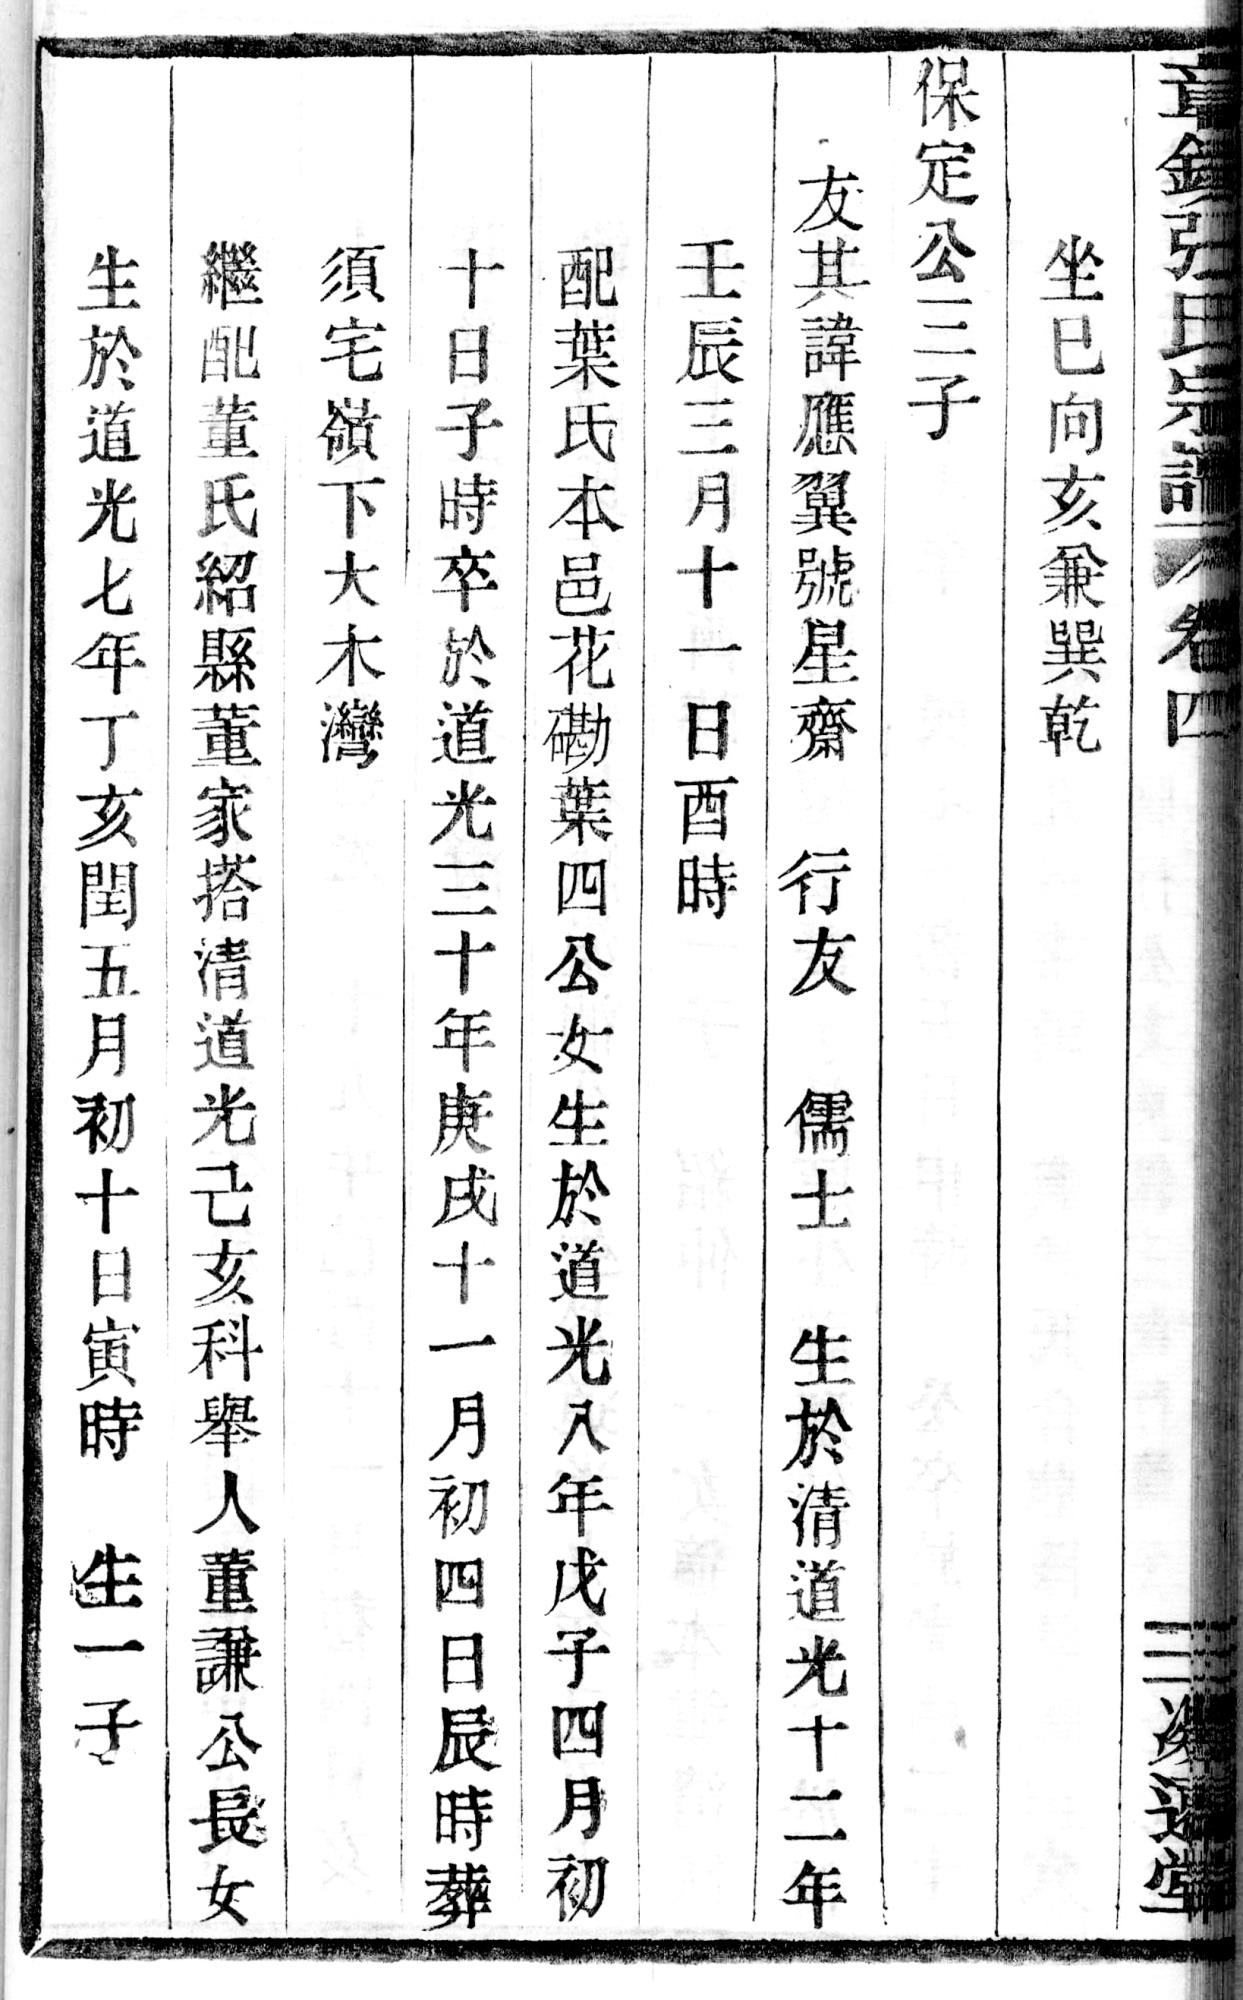 章鎮張氏宗譜 卷四
坐巳向亥兼巽乾
保定公三子
友其諱應翼號星齋 行友 儒士 生於清道光十二年
壬辰三月十一日酉時
配葉氏本邑花磡葉四公女生於道光八年戊子四月初
十日子時卒於道光三十年庚戌十一月初四日辰時葬
須宅嶺下大木灣
繼配董氏紹縣董家搭清道光己亥科舉人董謙公長女
生於道光七年丁亥閏五月初十日寅時 生一子